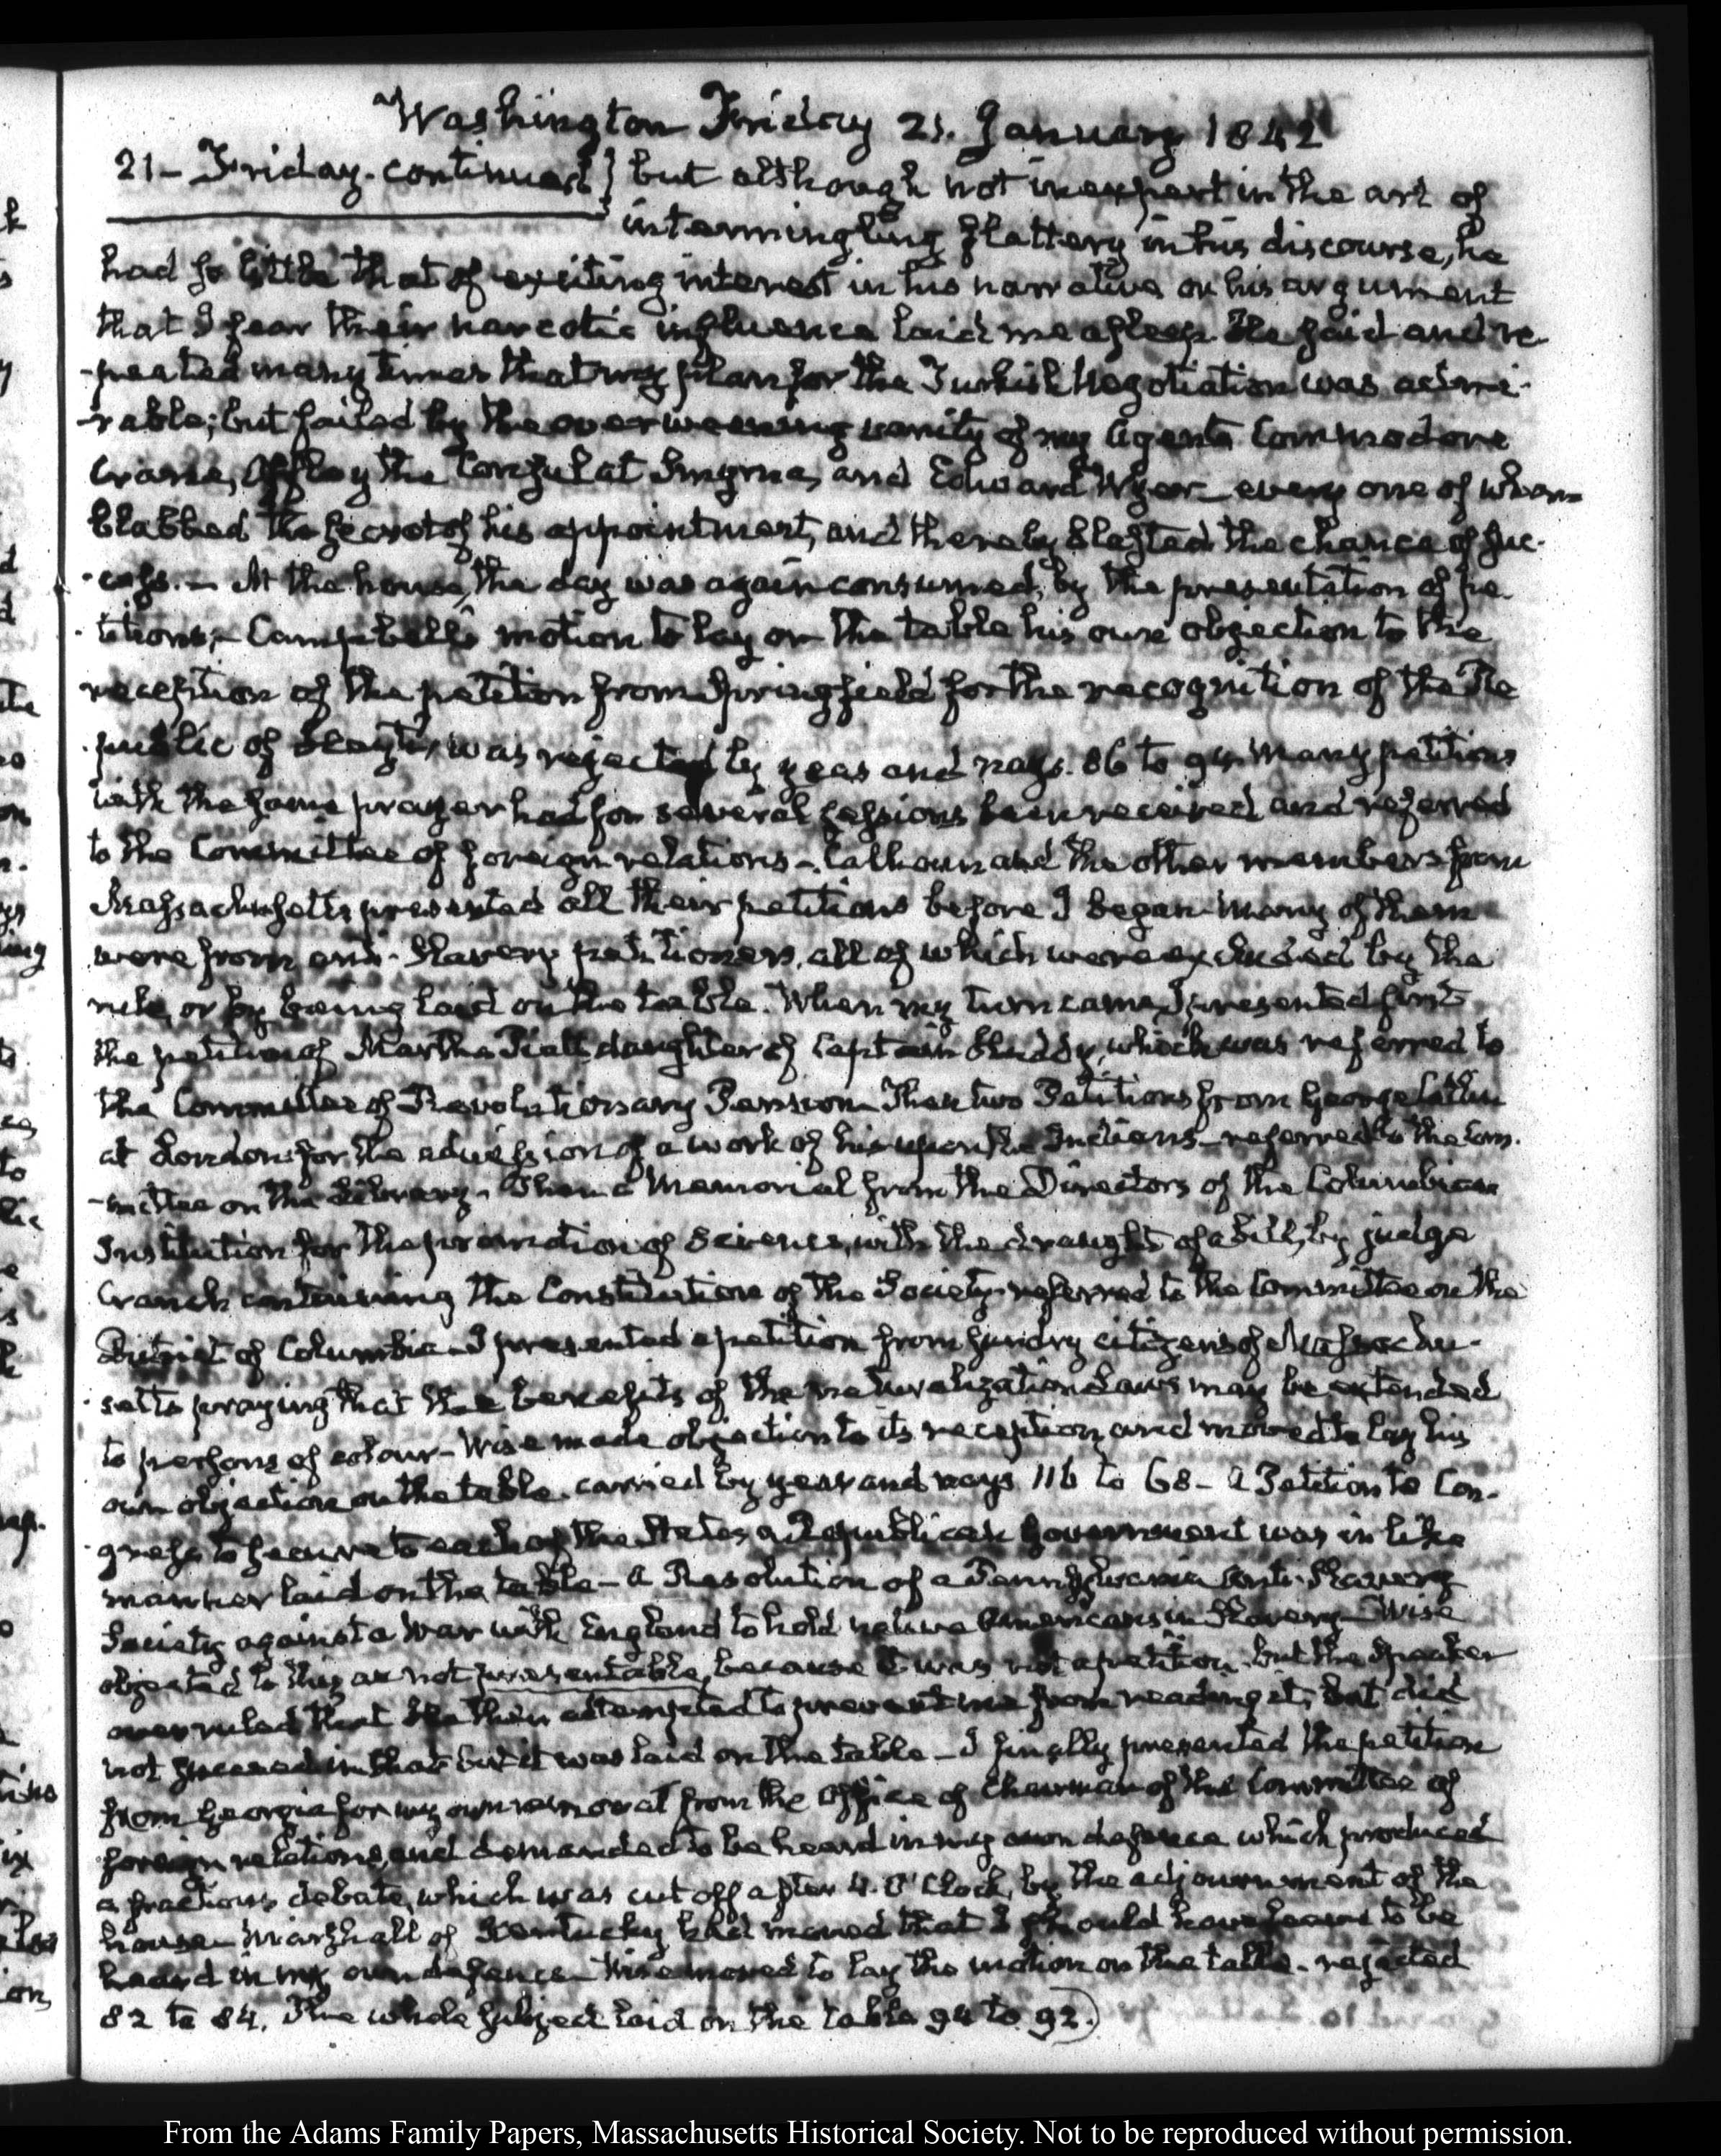 Washington Friday 21. January 1842
21 – Friday. continued} but although not inexpert in the art of
intermingling flattery in his discourse, he
had so little that of exciting interest in his narrative or his argument
that I fear their narcotic influence laid me asleep. He said and re-
-peated many times that my plan for the Turkish Negotiation was admi-
-rable; but failed by the overweening vanity of my Agents Commodore
Crane, Offley the Consul at Smyrna, and Edward Wyer – every one of whom
blabbed the secret of his appointment, and thereby blasted the chance of suc-
-cess. – At the house, the day was again consumed, by the presentation of pe-
-titions; – Campbell's motion to lay on the table his own objection to the
reception of the petition from Springfield for the recognition of the Re
-public of Hayti, was rejected by yeas and nays. 86 to 94. Many petitions
with the same prayer had for several sessions been received and referred
to the Committee of foreign relations – Calhoun and the other members from
Massachusetts presented all their petitions before I began. Many of them
were from anti-Slavery petitioners, all of which were excluded by the
rule, or by being laid on the table. When my turn came, I presented first
the petition of Martha daughter of Captain which was referred to
the Committee of Revolutionary Pension. Then two Petitions from George Catlin
at London for the of a work of his upon the Indians – referred to the Com-
-mittee on the Library. Then a Memorial from the Directors of the Columbian
Institution for the promotion of Science, with the draught of a bill, by judge
Cranch containing the Constitution of the Society – referred to the Committee on the
District of Columbia – I presented a petition from sundry citizens of Massachu-
-setts praying that the benefits of the naturalization Laws may be extended
to persons of colour – Wise made objection to its reception, and moved to lay his
own objection on the table. carried by yeas and nays 116 to 68 – A Petition to Con-
-gress to secure to each of the States a Republican Government was in like
manner laid on the table – A Resolution of a Pennsylvania Anti-Slavery
Society against a War with England to hold native Americans in Slavery – Wise
objected to this as not presentable, because it was not a petition – but the Speaker
overruled that He then attempted to prevent me from reading it, but did
not succeed in that but it was laid on the table – I finally presented the petition
from Georgia for my own removal from the Office of Chairman of the Committee of
foreign relations, and demanded to be heard in my own defence which produced
a fractious debate, which was cut off after 4. O'Clock, by the adjournment of the
house – Marshall of Kentucky had moved that I should have leave to be
heard in my own defence – Wise moved to lay the motion on the table – rejected
82 to 84. The whole subject laid on the table 94 to 92.)
From the Adams Family Papers, Massachusetts Historical Society. Not to be reproduced without permission.